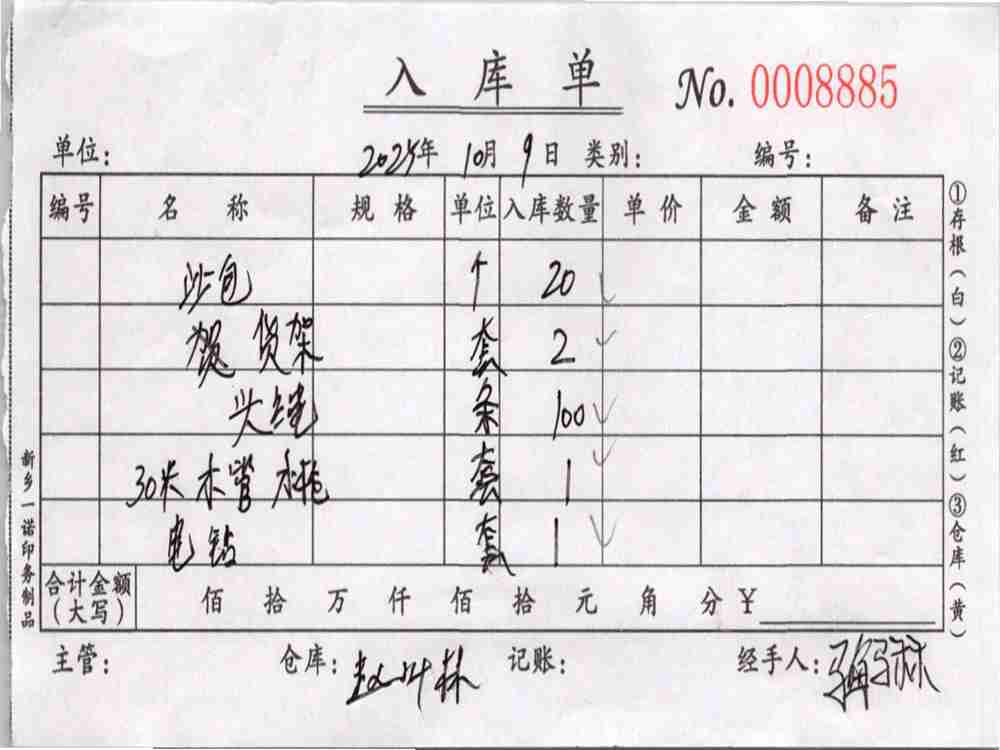 入库单 No. 0008885
单位： 2024年 10月 9日 类别： 编号：
编号 名称 规格 单位 入库数量 单价 金额 备注
沙包 个 20
货架 套 2
头绳 条 100
30米 水管 水枪 套 1
电钻 套 1
合计金额（大写） 佰 拾 万 仟 佰 拾 元 角 分 ¥
主管： 仓库： 记账： 经手人：
①存根（白）②记账（红）③仓库（黄）
新乡一诺印务制品